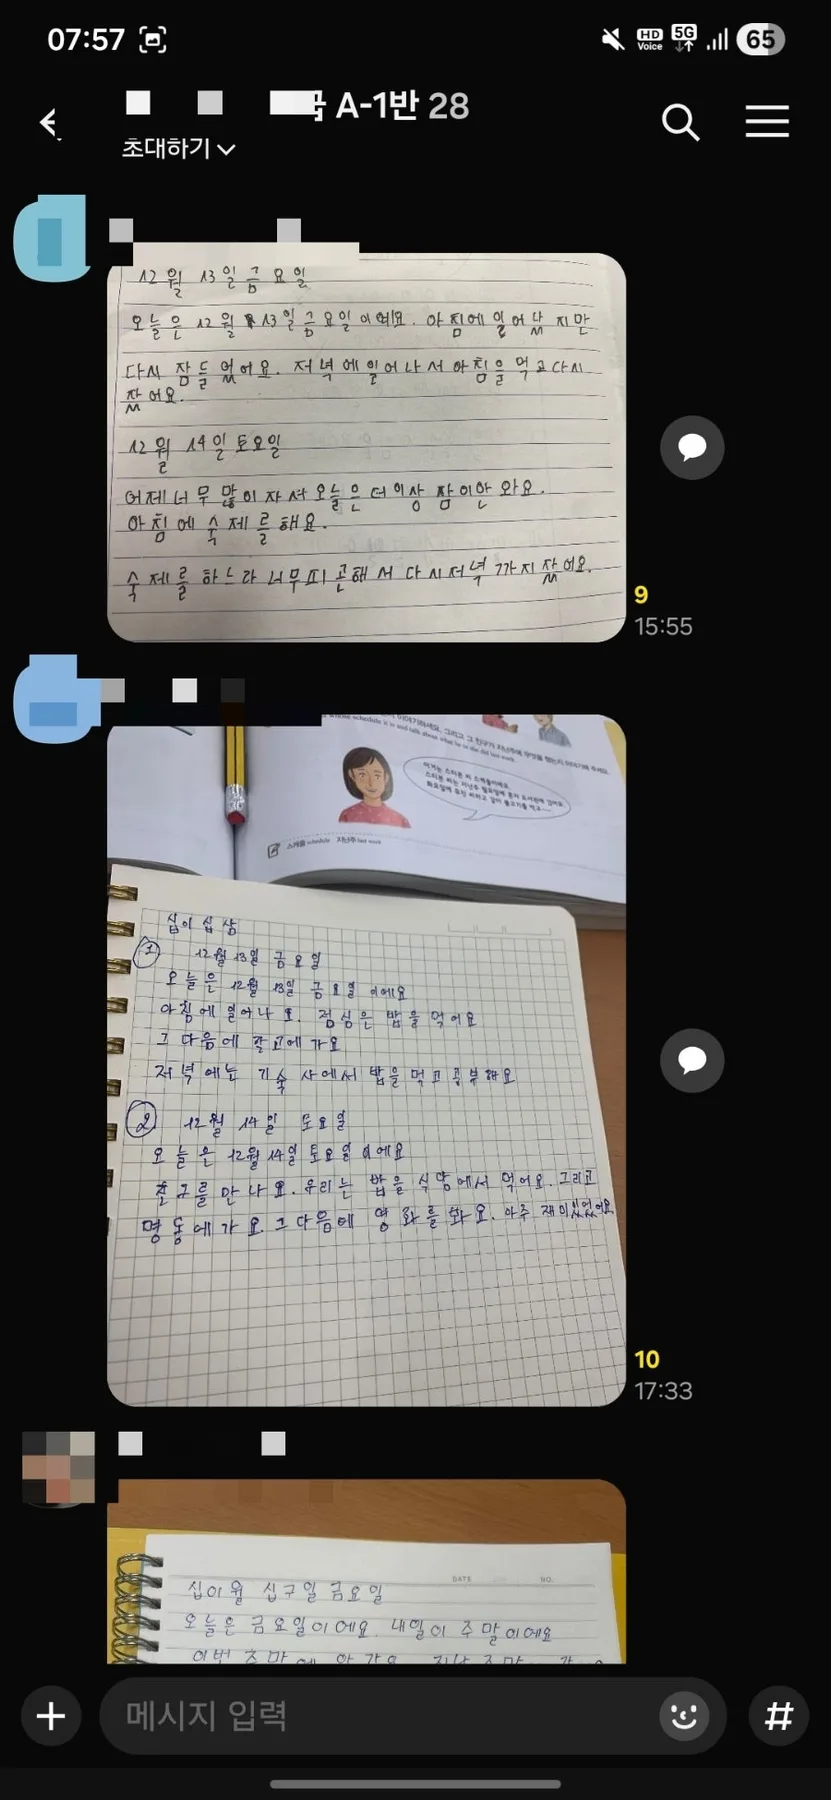 07:57
HD Voice 5G 65
A-1반 28
초대하기
12월 13일 금요일
오늘은 12월 13일 금요일이에요. 아침에 일어났지만
다시 잠들었어요. 저녁에 일어나서 아침을 먹고 다시
잤어요.
12월 14일 토요일
어제 너무 많이 자서 오늘은 더 이상 잠이 안 와요.
아침에 숙제를 해요.
숙제를 하느라 너무 피곤해서 다시 저녁까지 잤어요.
9
15:55
스케줄 schedule 지난주 last week
십이 십상
1 12월 13일 금요일
오늘은 12월 13일 금요일이에요
아침에 일어나요. 점심은 밥을 먹어요
그 다음에 가요
저녁에는 기숙사에서 밥을 먹고 공부해요
2 12월 14일 토요일
오늘은 12월 14일 토요일이에요
친구를 만나요. 우리는 밥을 식당에서 먹어요. 그리고
명동에 가요. 그 다음에 영화를 봐요. 아주 재미있었어요
10
17:33
DATE NO.
십이월 십구일 금요일
오늘은 금요일이에요. 내일이 주말이에요
메시지 입력
#